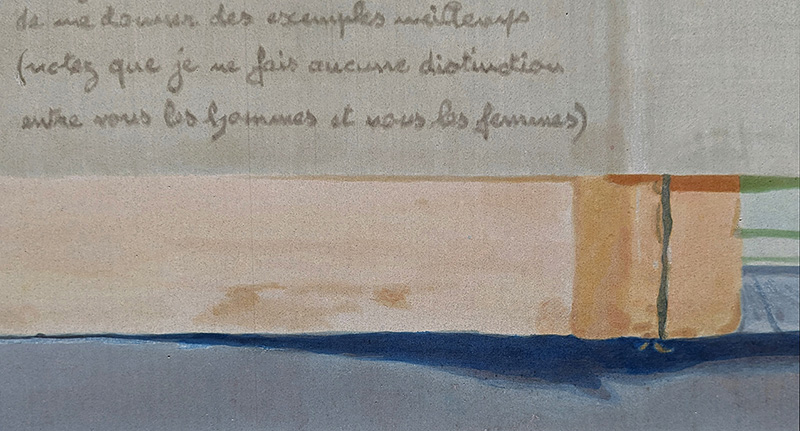 de me donner des exemples meilleurs
(notez que je ne fais aucune distinction
entre vous les hommes et vous les femmes)